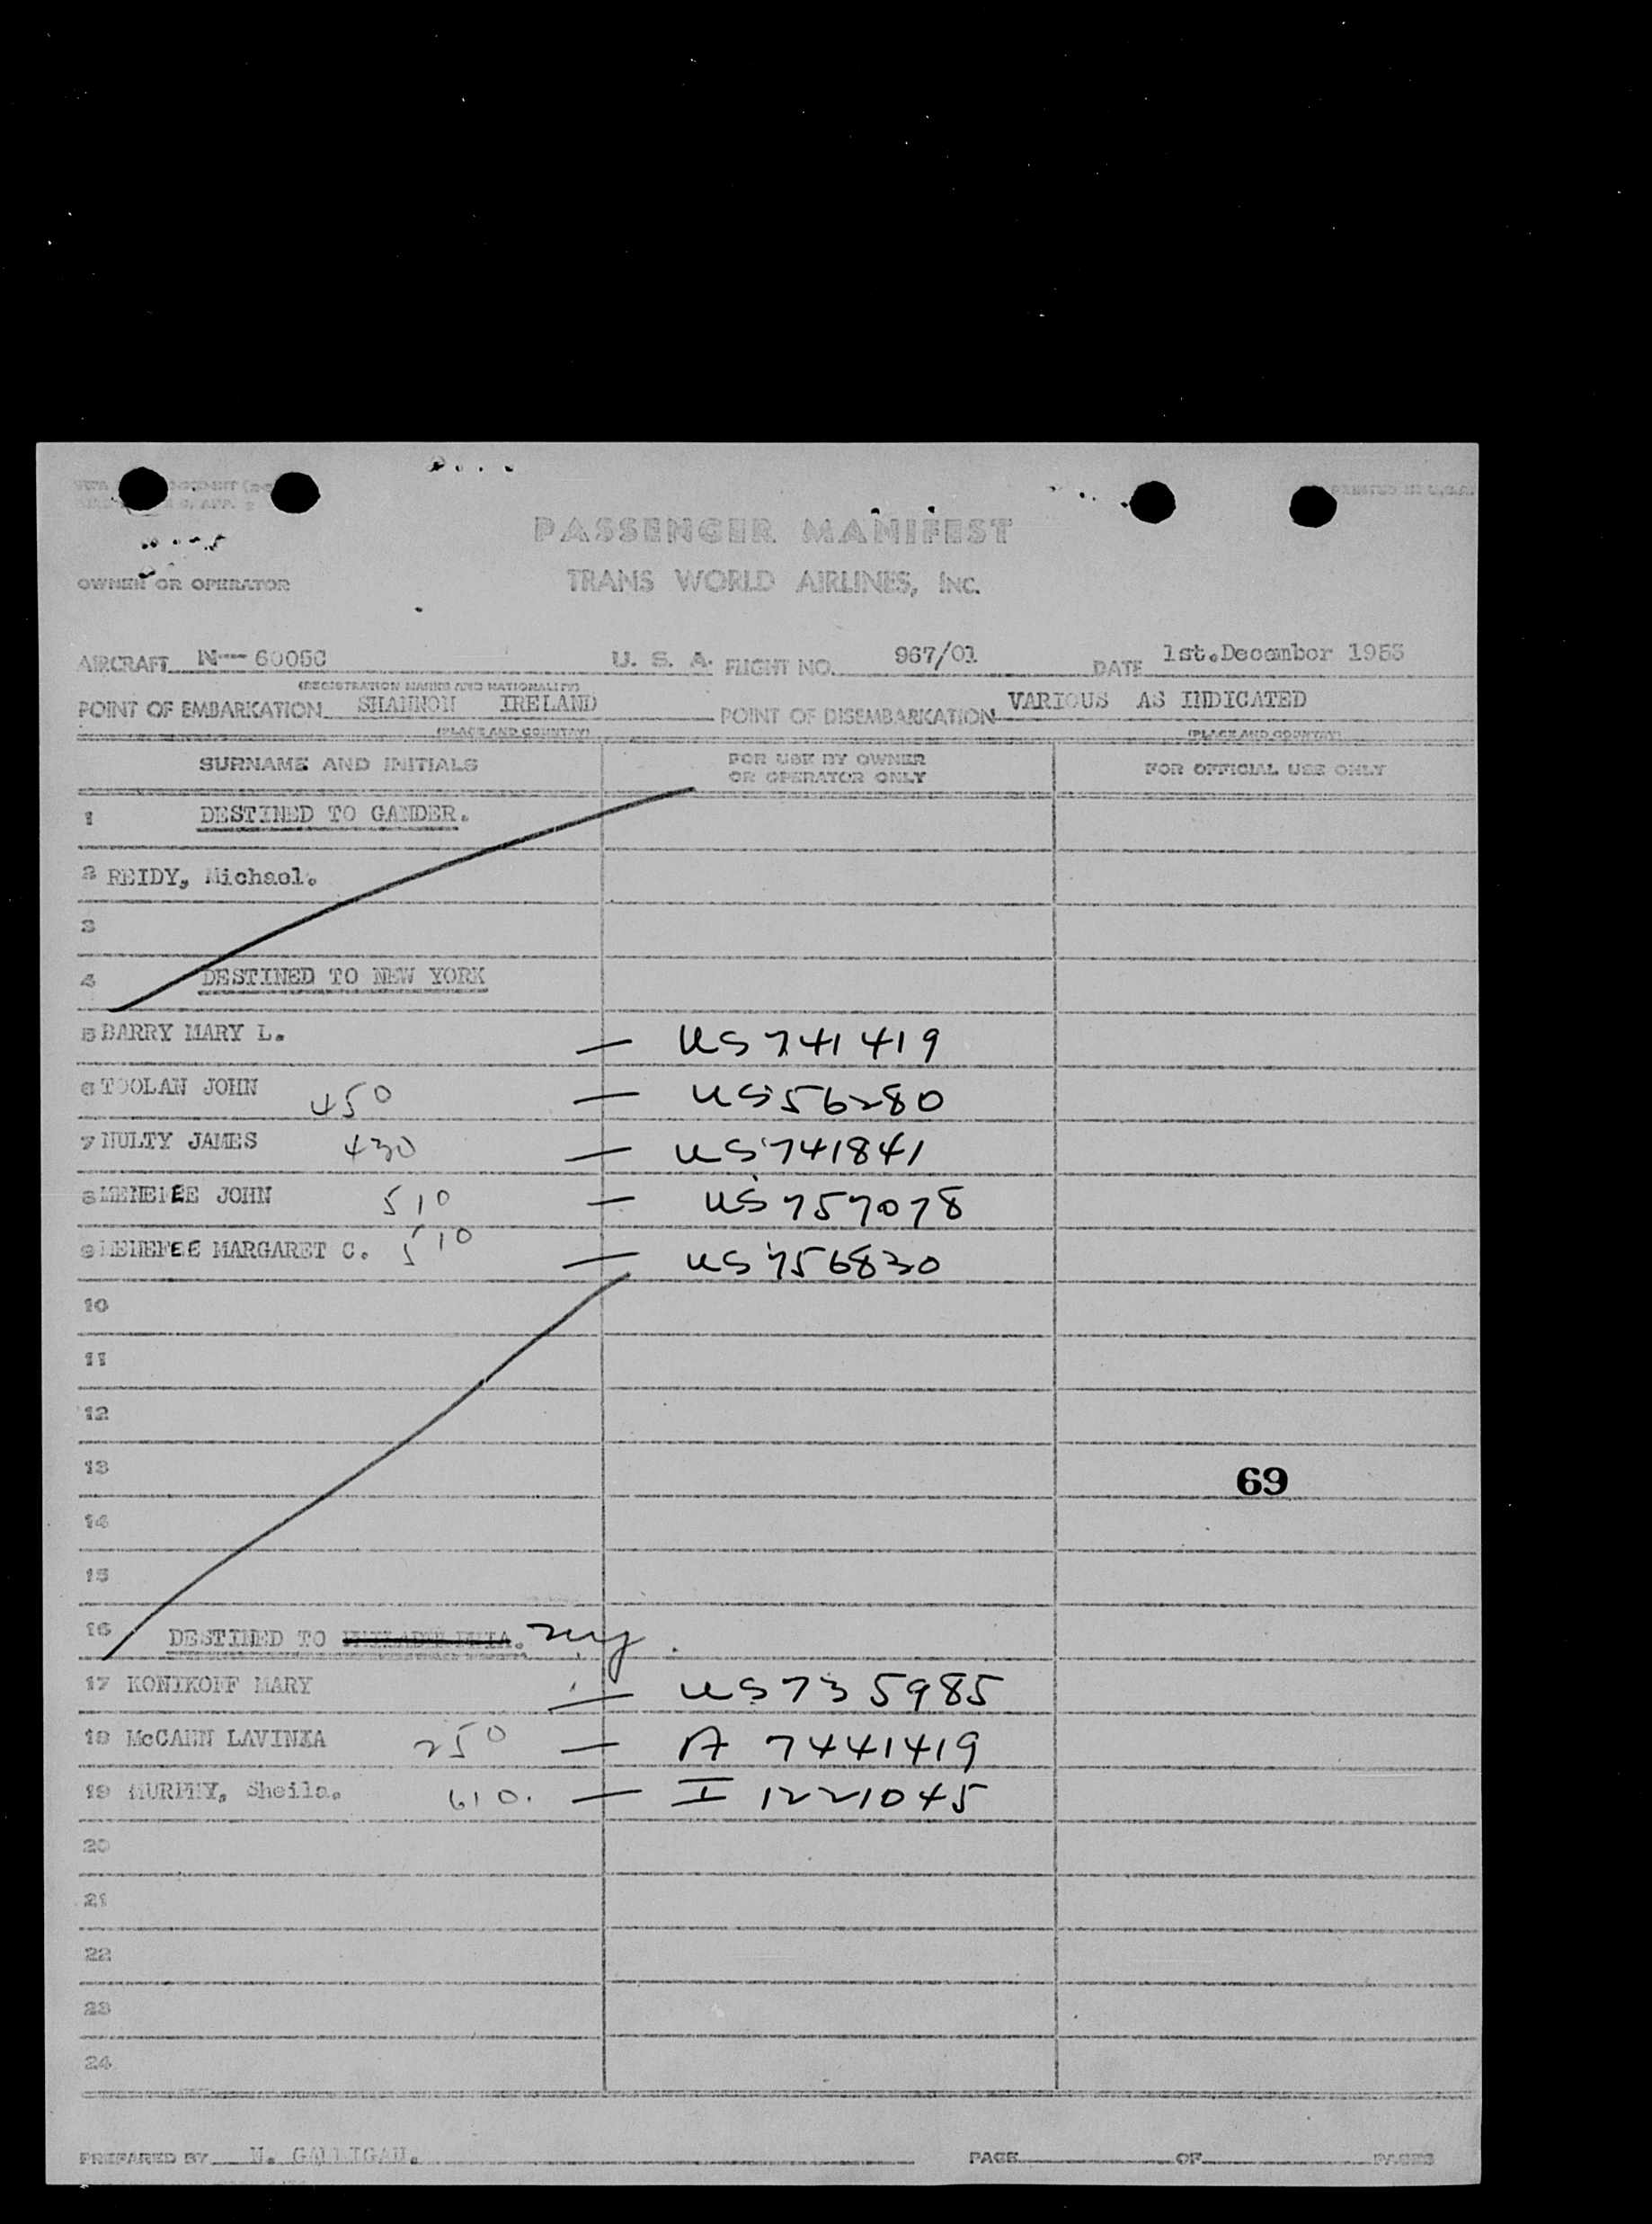 PRINTED IN U.S.A.
PASSENGER MANIFEST
OWNER OR OPERATOR TRANS WORLD AIRLINES, INC.
AIRCRAFT N--- 6005C U. S. A. FLIGHT NO. 967/01 DATE 1st.December 1953
(REGISTRATION MARKS AND NATIONALITY)
POINT OF EMBARKATION SHANNON IRELAND POINT OF DISEMBARKATION VARIOUS AS INDICATED
(PLACE AND COUNTRY) (PLACE AND COUNTRY)
SURNAME AND INITIALS FOR USE BY OWNER OR OPERATOR ONLY FOR OFFICIAL USE ONLY
1 DESTINED TO GANDER.
2 REIDY, Michael.
3
4 DESTINED TO NEW YORK
5 BARRY MARY L. — US 741419
6 TOOLAN JOHN 450 — US 56280
7 NULTY JAMES 430 — US 741841
8 MENEFEE JOHN 510 — US 757078
9 MENEFEE MARGARET C. 510 — US 756830
10
11
12
13 69
14
15
16 DESTINED TO PHILADELPHIA. NY.
17 KONIKOFF MARY — US 735985
18 McCANN LAVINIA 250 — A 7441419
19 MURPHY, Sheila. 610. — I 1221045
20
21
22
23
24
PREPARED BY N. GALLIGAN. PAGE OF PAGES